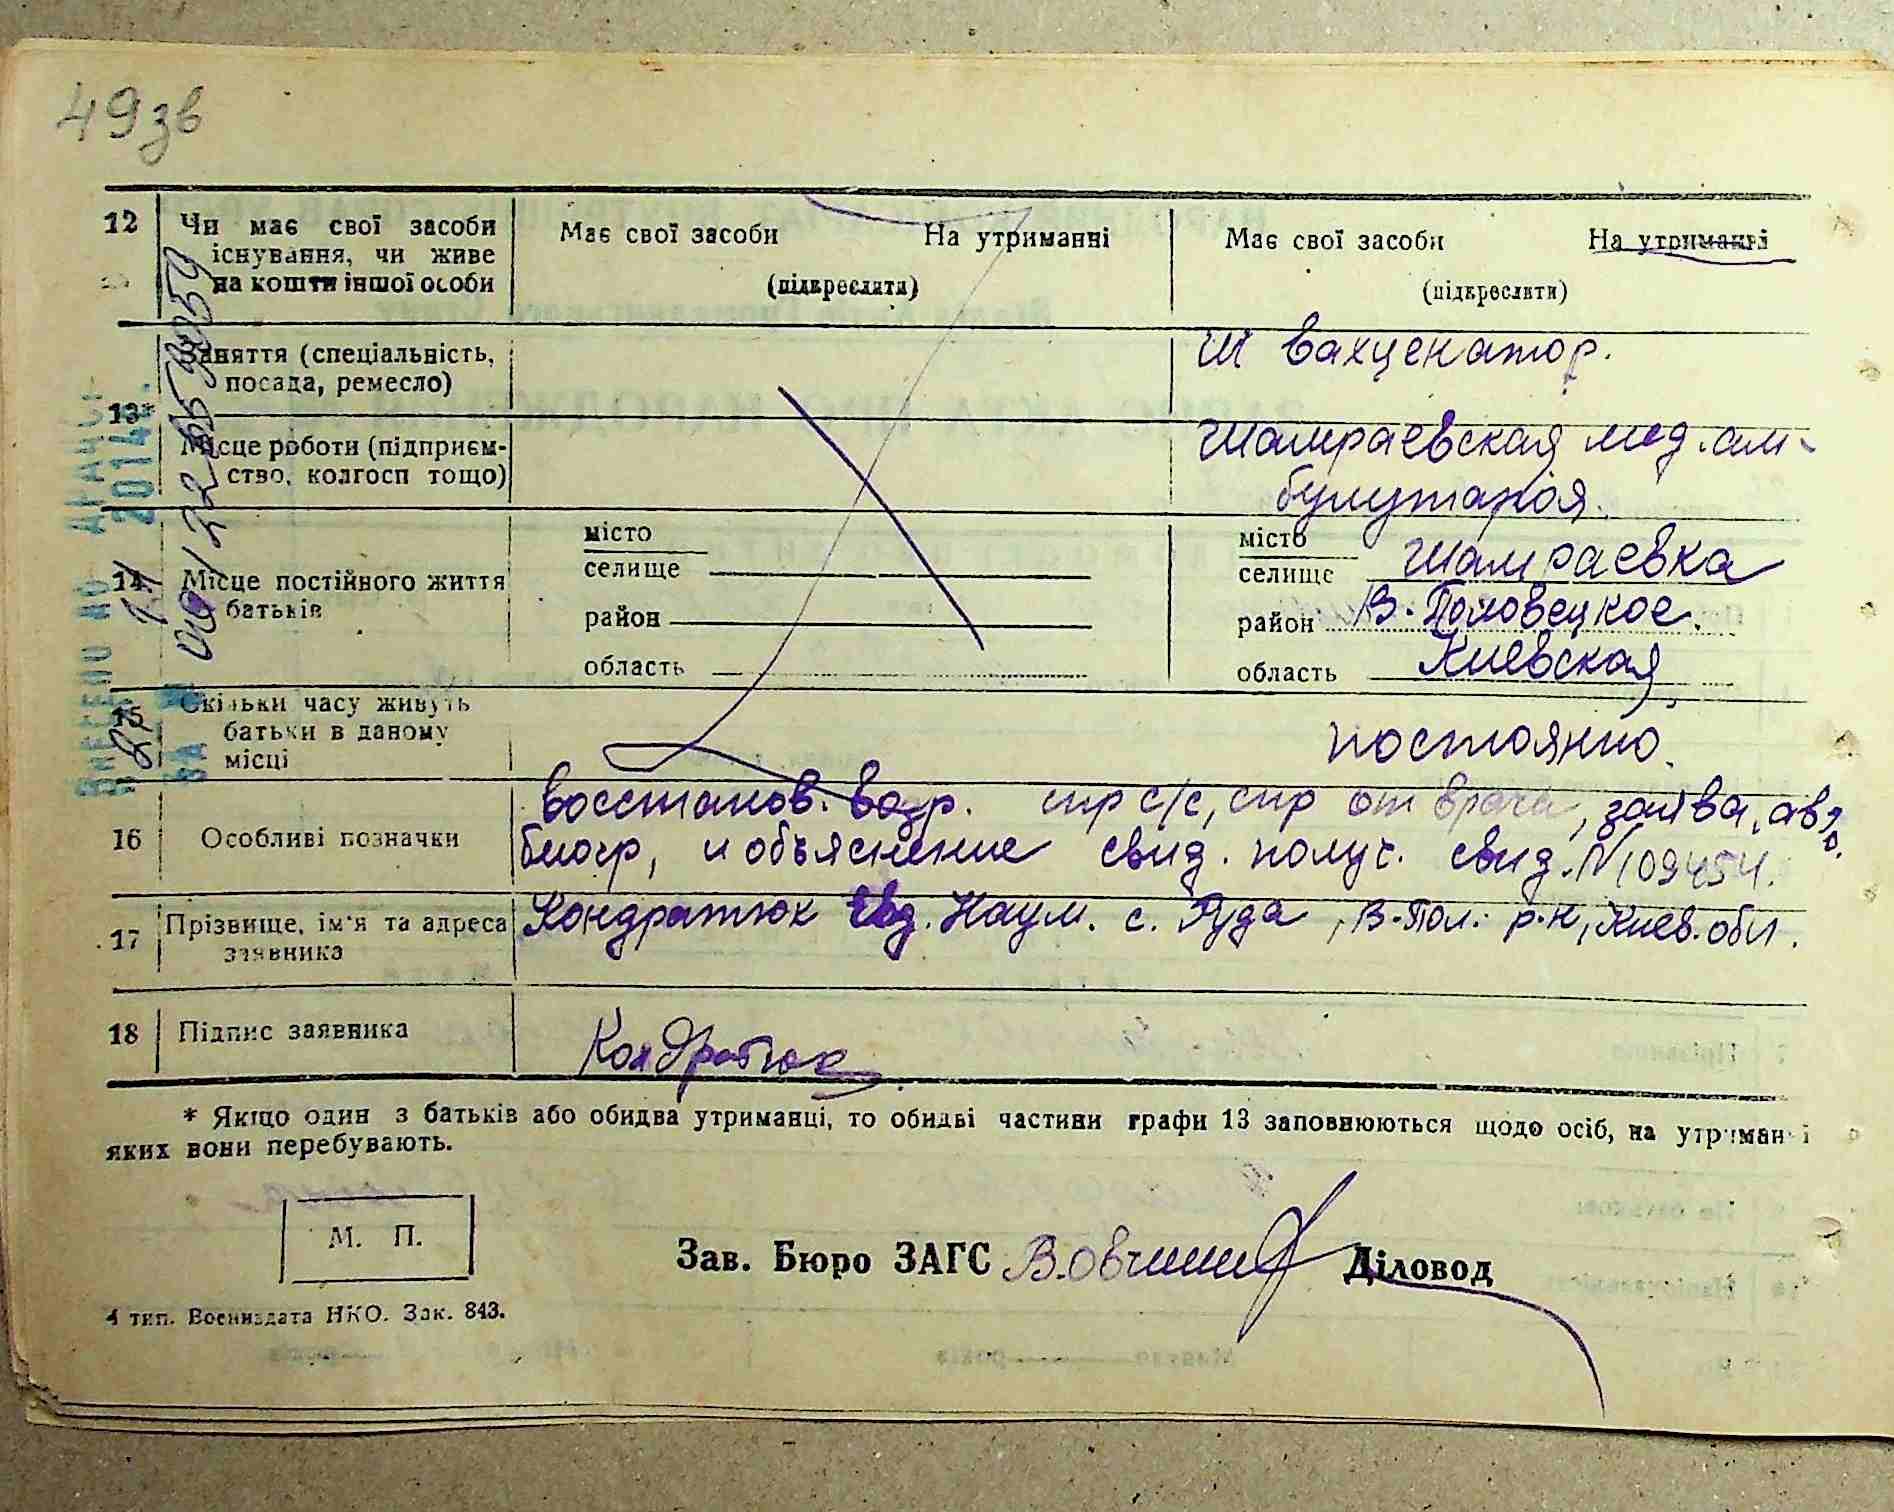 49зв
12 Чи має свої засоби існування, чи живе на кошти іншої особи
Має свої засоби На утриманні
(підкреслити)
Має свої засоби На утриманні
(підкреслити)
13*
Заняття (спеціальність, посада, ремесло)
вакценатор.
Місце роботи (підприєм-
ство, колгосп тощо)
Шамраевская мед. ам-
булутария.
14 Місце постійного життя батьків
місто
селище
район
область
місто
селище Шамраевка
район В-Половецкое.
область Киевская
15 Скільки часу живуть батьки в даному місці
постоянно.
16 Особливі позначки
восстанов. возр. спр с/с, спр от врача, заява, авто
биогр, и объяснение свид. получ. свид. N 109454.
17 Прізвище, ім'я та адреса заявника
Кондратюк Евд. Наум. с. Руда, В-Пол. р-н, Киев. обл.
18 Підпис заявника
Кондратюк
* Якщо один з батьків або обидва утриманці, то обидві частини графи 13 заповнюються щодо осіб, на утриманні
яких вони перебувають.
М. П.
Зав. Бюро ЗАГС Діловод
4 тип. Воениздата НКО. Зак. 843.
ВНЕСЕНО ДО ДРАЦС
2014